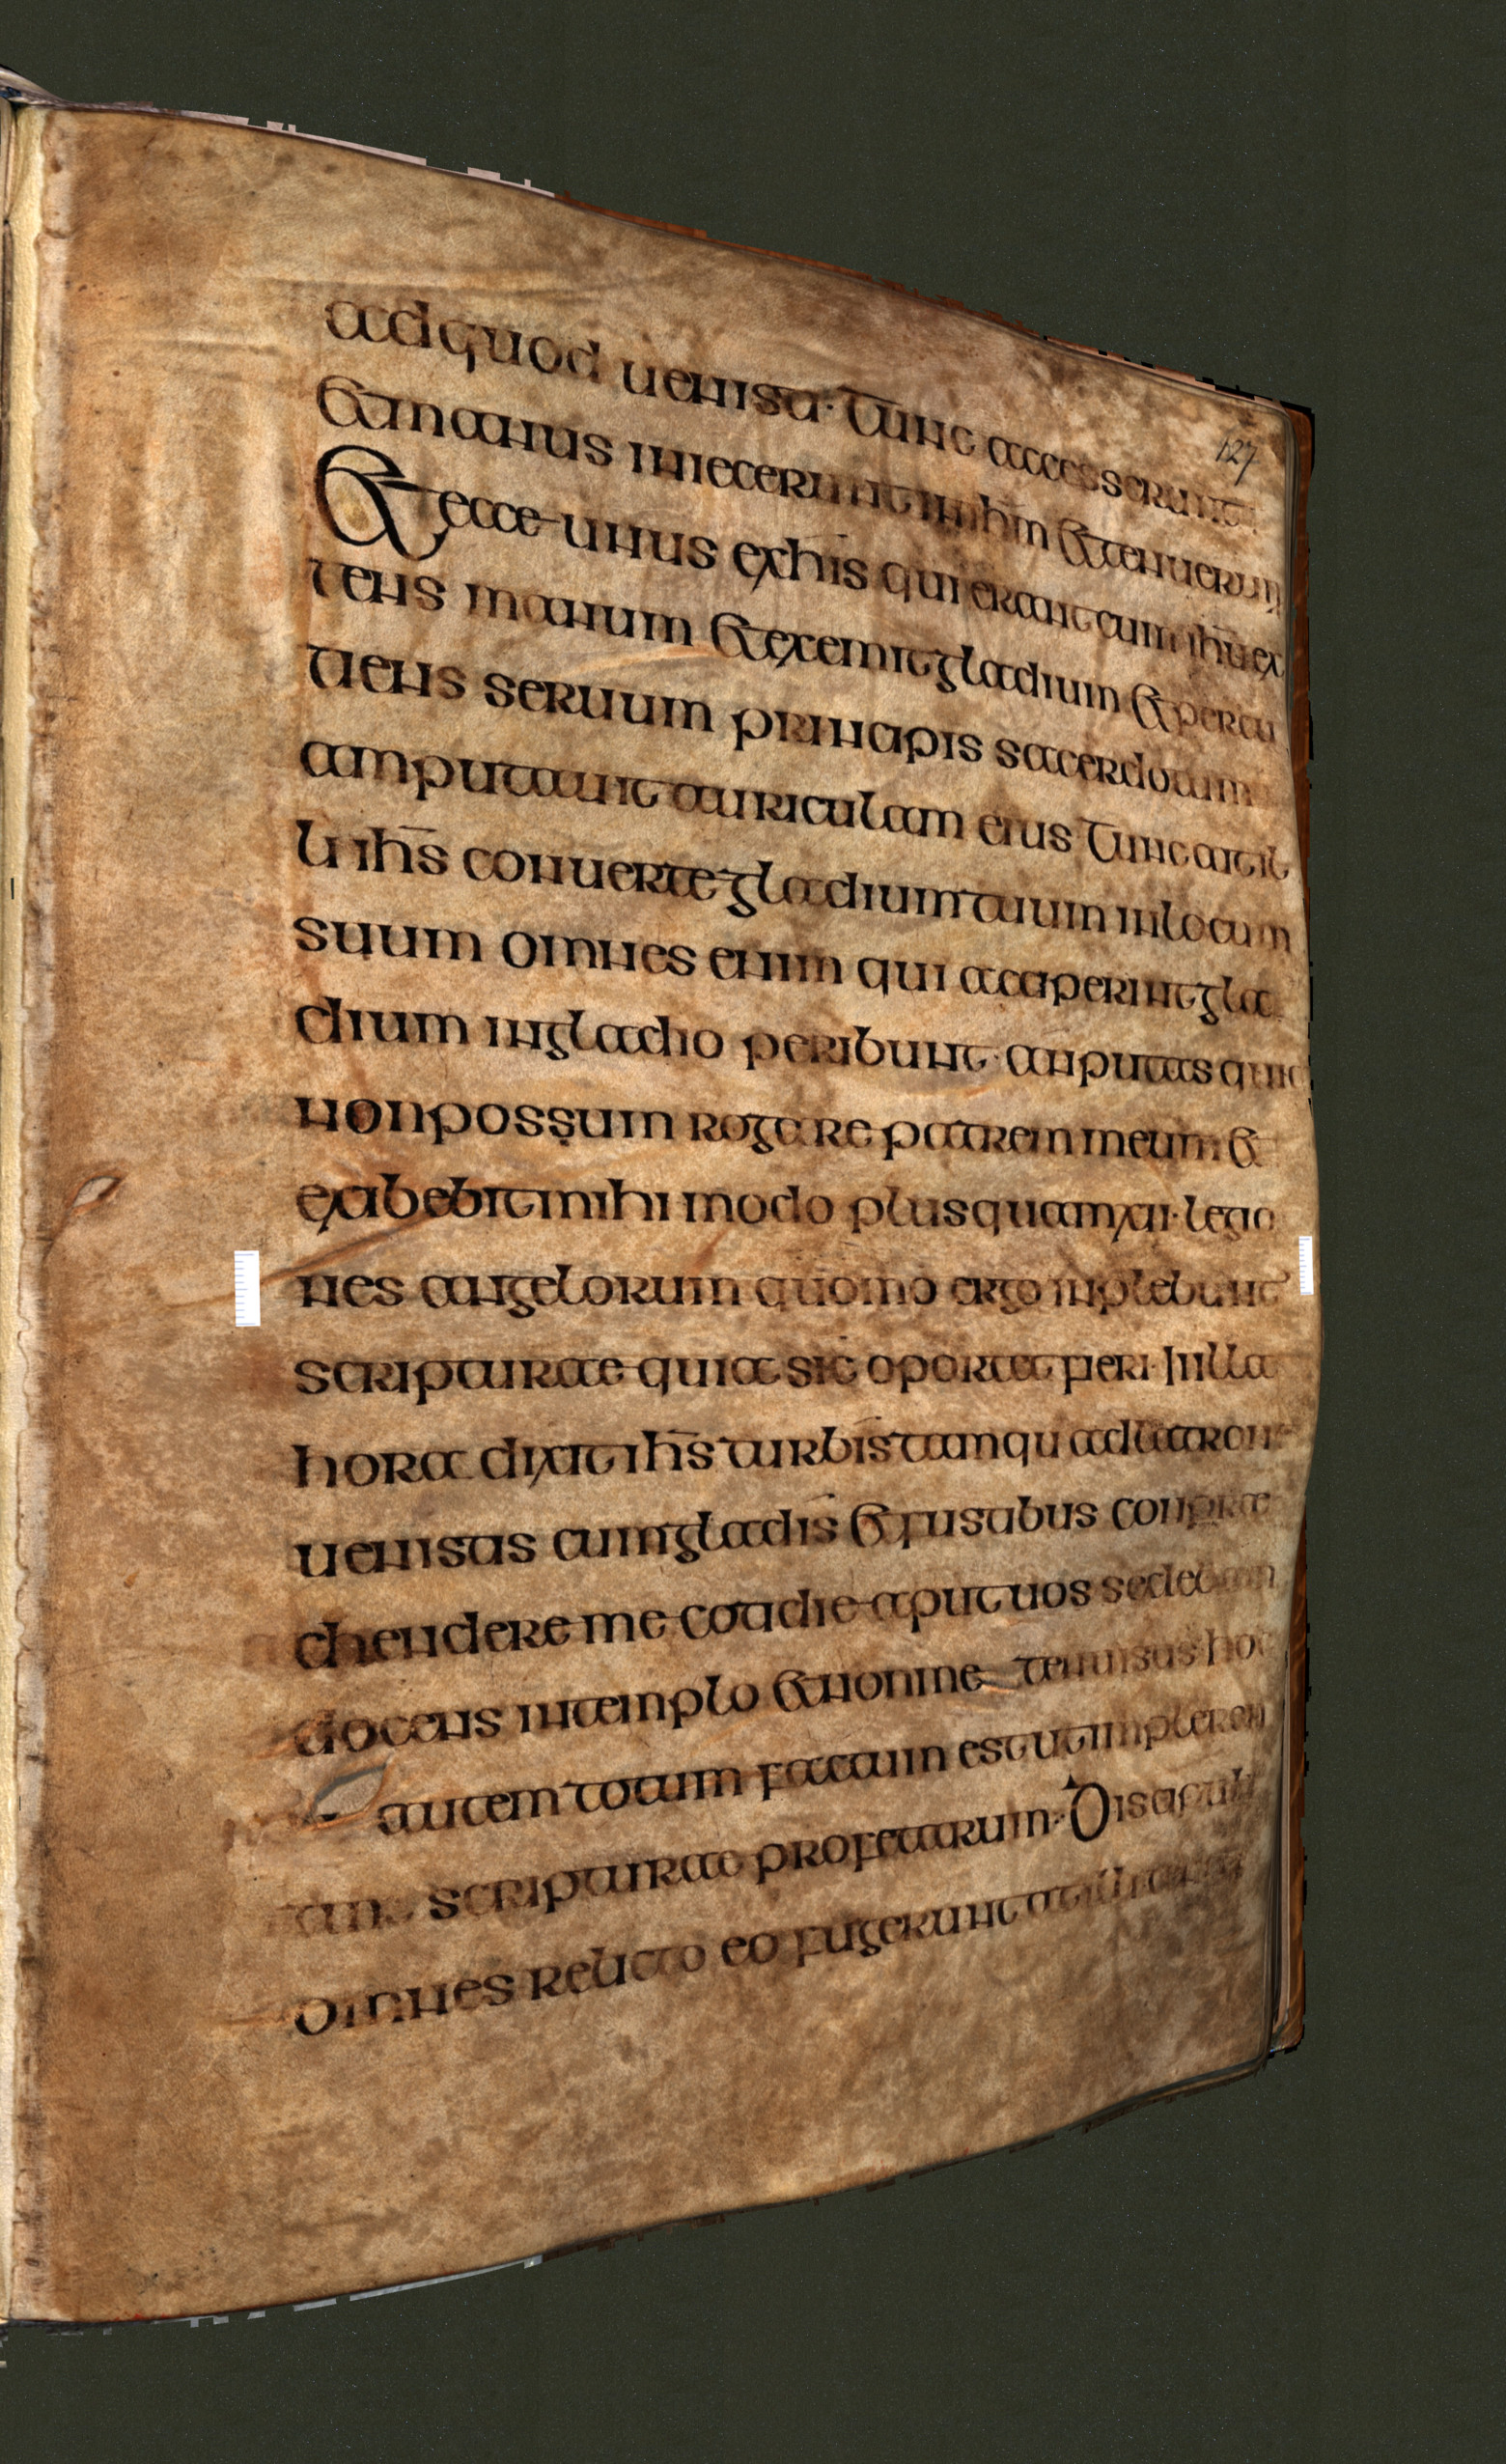 127
adquod uenisti· Tunc accesserunt
et manus iniecerunt in ihm et tenuerunt
Et ecce unus exhis qui erant cum ihu ex
tens manum et exemit gladium et percu
tiens seruum principis sacerdotum
amputauit auriculam eius Tunc ait il
li ihs conuerte gladium tuum inlocum
suum omnes enim qui acciperint gla
dium ingladio peribunt· an putas quia
non possum rogare patrem meum et
exibebit mihi modo plus quam xii· legio
nes angelorum quomo ergo inplebunt
scripturae quia sic oportet fieri· In illa
hora dixit ihs turbis tamqu ad latron
uenistis cum gladis et fustibus conprae
chendere me cotidie aput uos sedebam
docens intemplo et non me tenuistis hoc
autem totum factum est ut impleren
scripturae profetarum· Discipuli
omnes relicto eo fugerunt